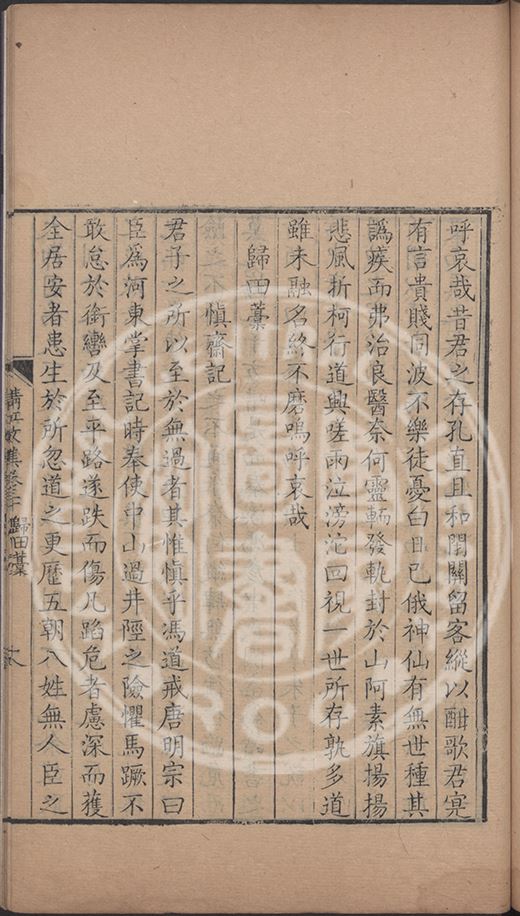 呼哀哉昔君之存孔直且和閉關留客縱以酣歌君寔
有言貴賤同波不樂徒憂白日已俄神仙有無世種其
譌疾而弗治良醫奈何靈輀發軌封於山阿素旗揚揚
悲風折柯行道興嗟雨泣滂沱回視一世所存孰多道
雖未融名終不磨嗚呼哀哉
歸田藁
慎齋記
君子之所以至於無過者其惟慎乎馮道戒唐明宗曰
臣為河東掌書記時奉使中山過井陘之險懼馬蹶不
敢怠於銜轡及至平路遂跌而傷凡蹈危者慮深而獲
全居安者患生於所忽道之更歷五朝八姓無人臣之
清江文集卷三十 歸田藁